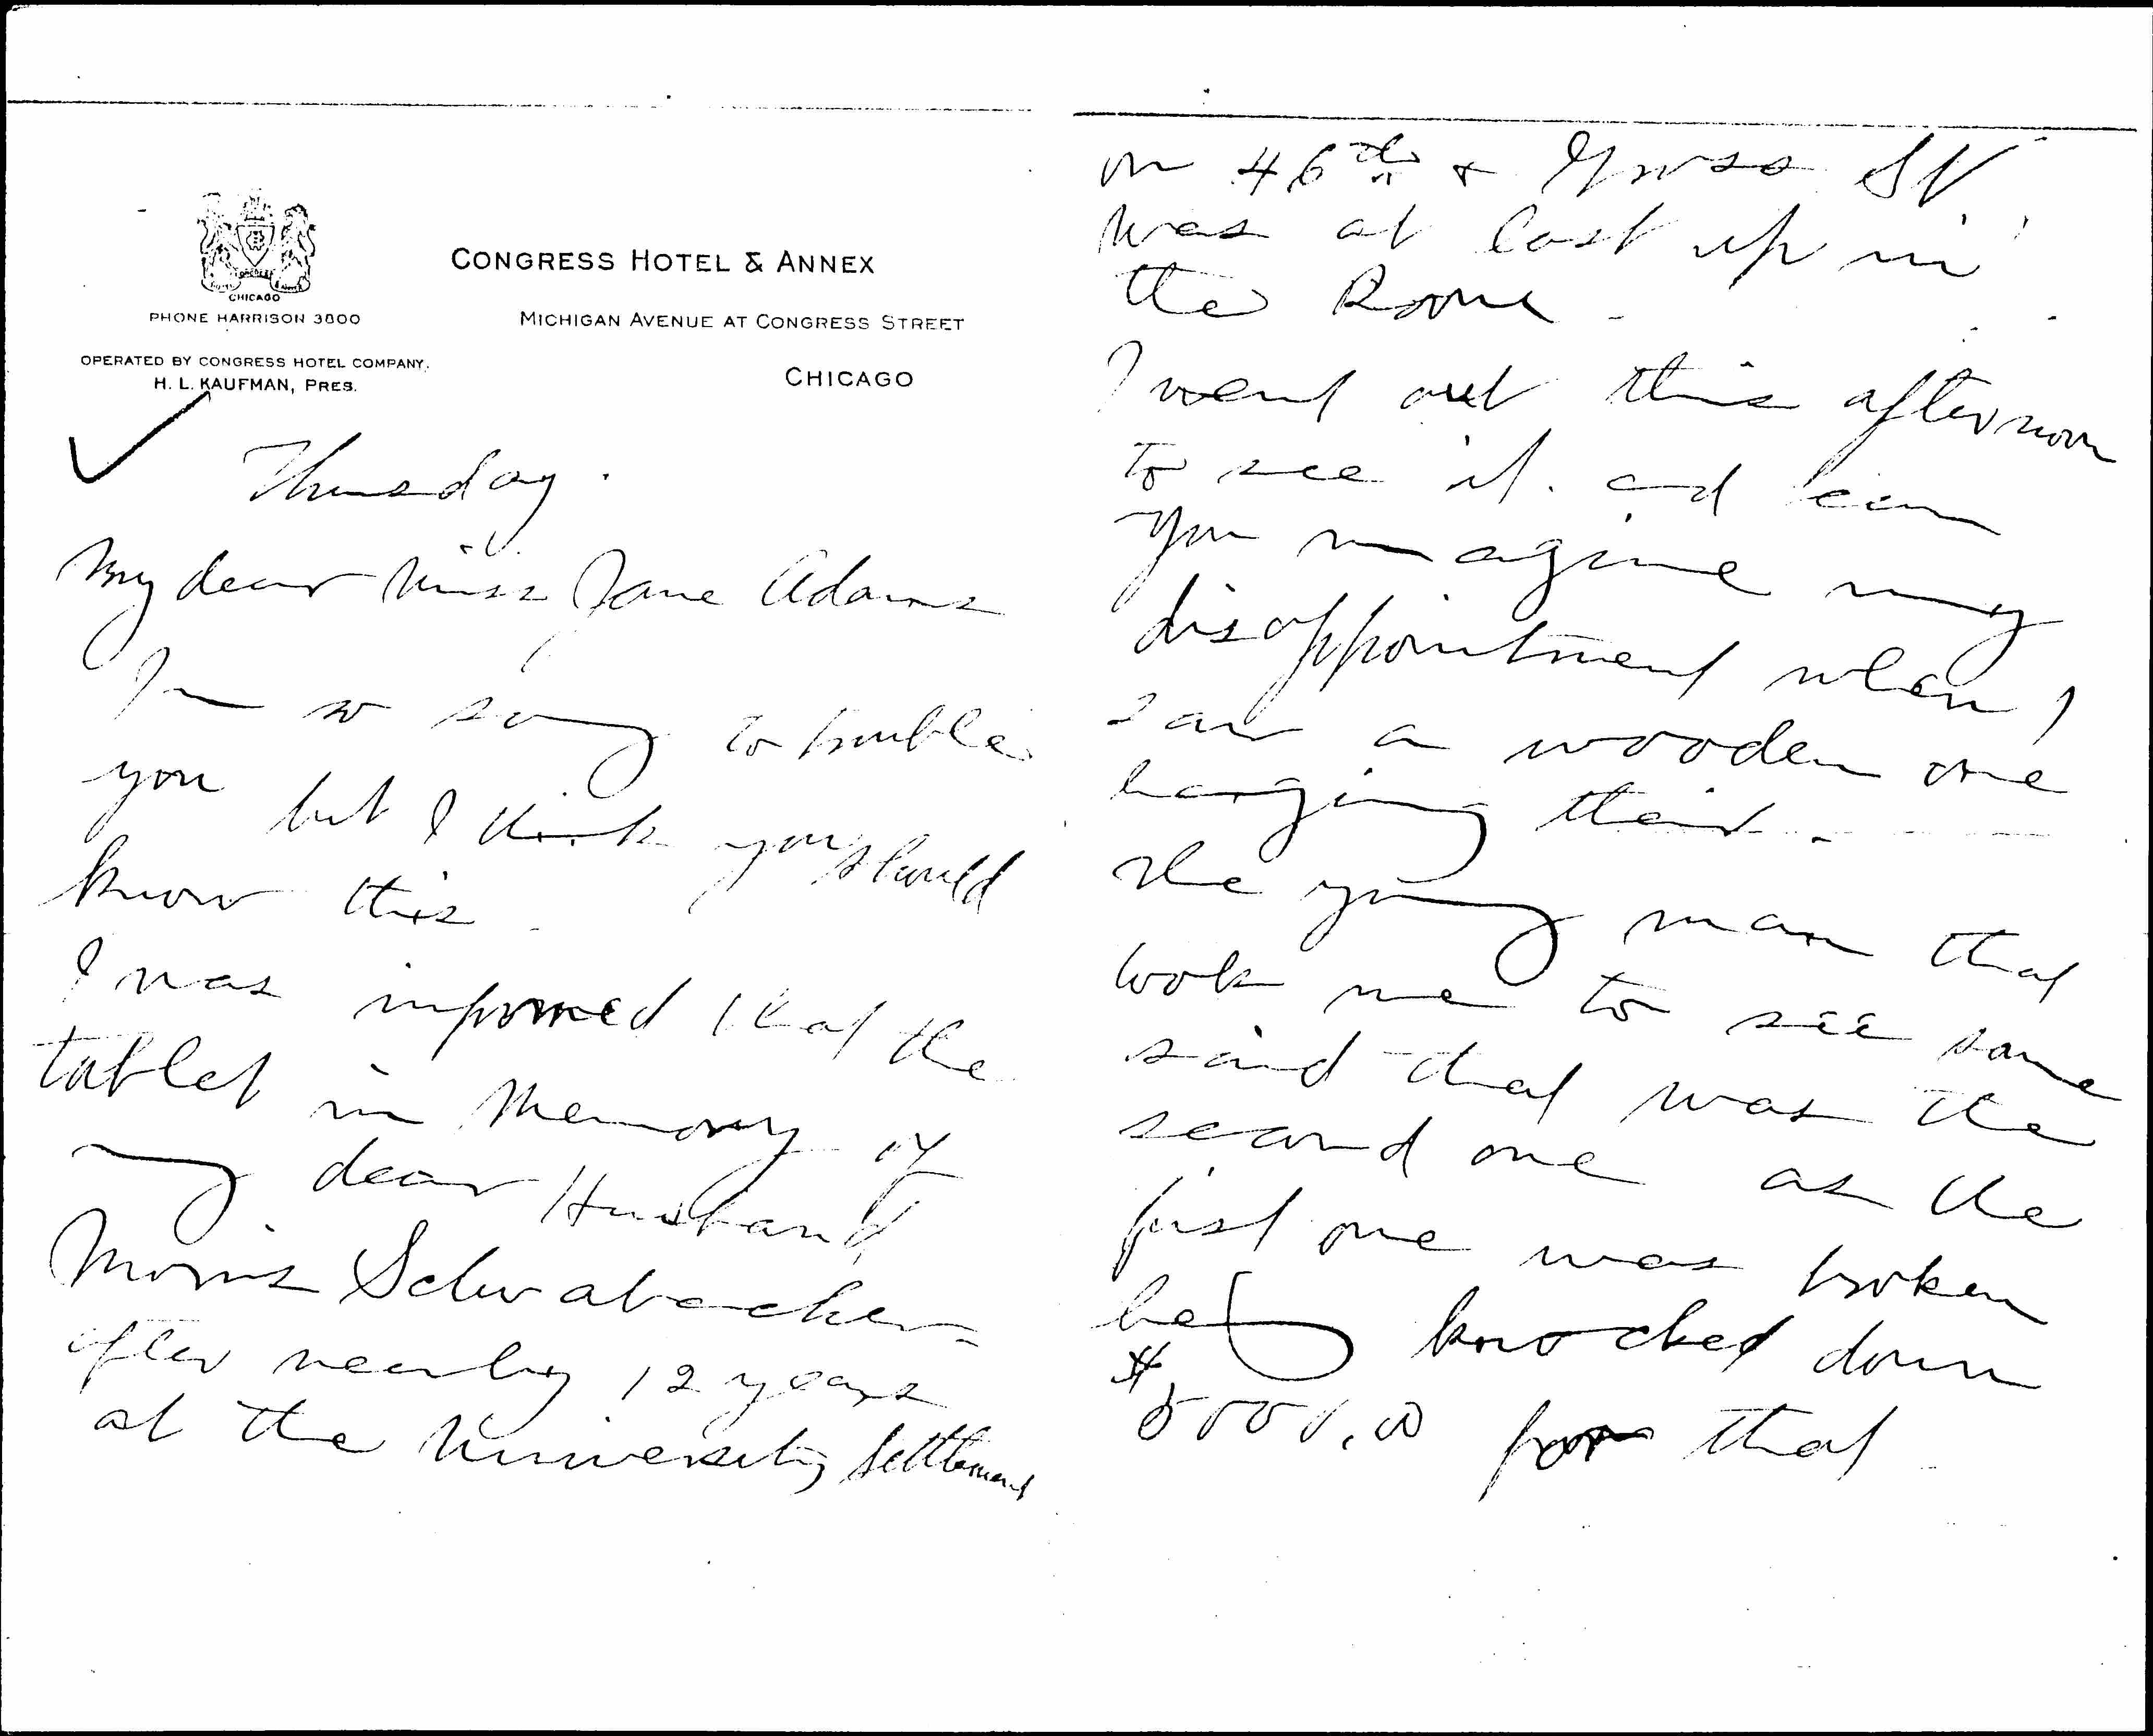 CHICAGO
PHONE HARRISON 3800
OPERATED BY CONGRESS HOTEL COMPANY.
H. L. KAUFMAN, PRES.
CONGRESS HOTEL & ANNEX
MICHIGAN AVENUE AT CONGRESS STREET
CHICAGO
Thursday.
My dear Miss Jane Adams
I'm so sorry to trouble
you but I think you should
know this
I was informed that the
tablet in Memory of
my dear Husband
Morris Schwabacher
after nearly 12 years
at the University Settlement
on 46th & Gross St
was at last up in
the Room.
I went out this afternoon
to see it. and can
you imagine my
disappointment when I
saw a wooden one
hanging their.
The young man that
took me to see same
said that was the
second one as the
first one was broken
being knocked down
$5000.00 for that